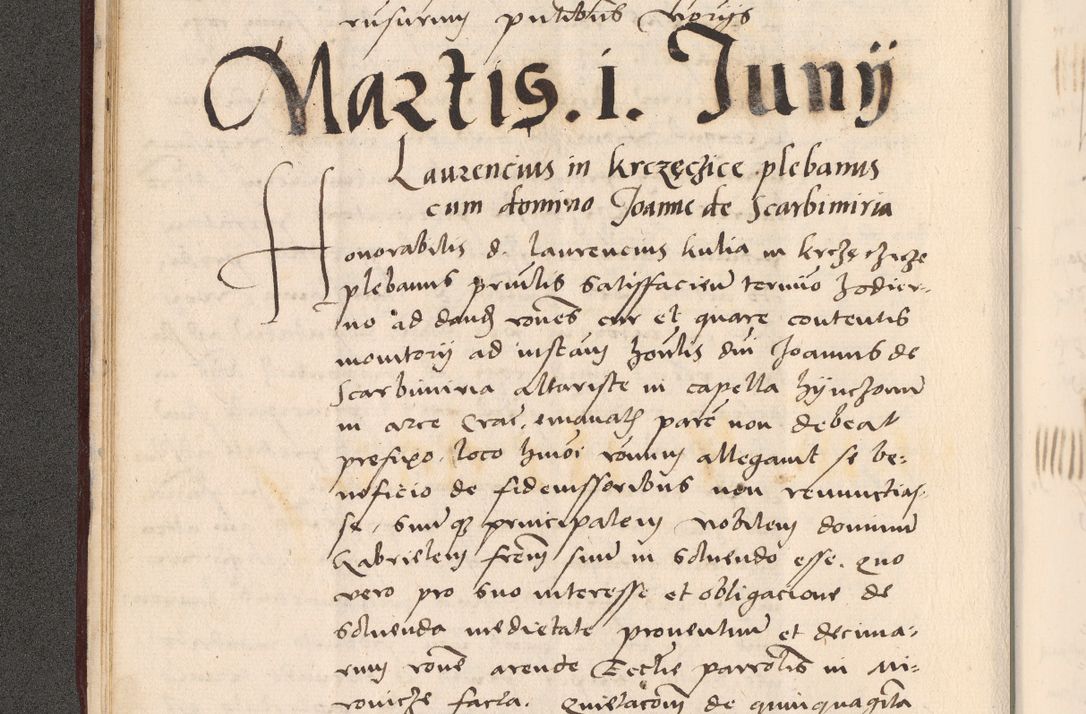 rusurum putibus noryis
Martis. i. Junij
Laurencius in krczęczice plebanus
cum domino Joanne de Scarbimiria
Honorabilis d. laurencius kulia in krczęczicze
plebanus prinlis satisfaciens termino hodier-
no ad dand rones cur et quare contentis
monitorij ad instam honlis dni Joannis de
Scarbimiria altariste in capella hijnczonis
in arce Crac. emanath pare non debeat
prefixo. loco hmoi ronum allegavit se be-
neficio de fideiussoribus non renunctias-
se, sumque principalem nobilem dominum
Gabrielem frem suum in solvendo esse. Quo
vero pro suo interesse et obligacione de
solvenda medietate proventuum et decima-
rum rone arende Ecclie parrolis in Mi-
rovicze facta. Quietacom de quinquaginta